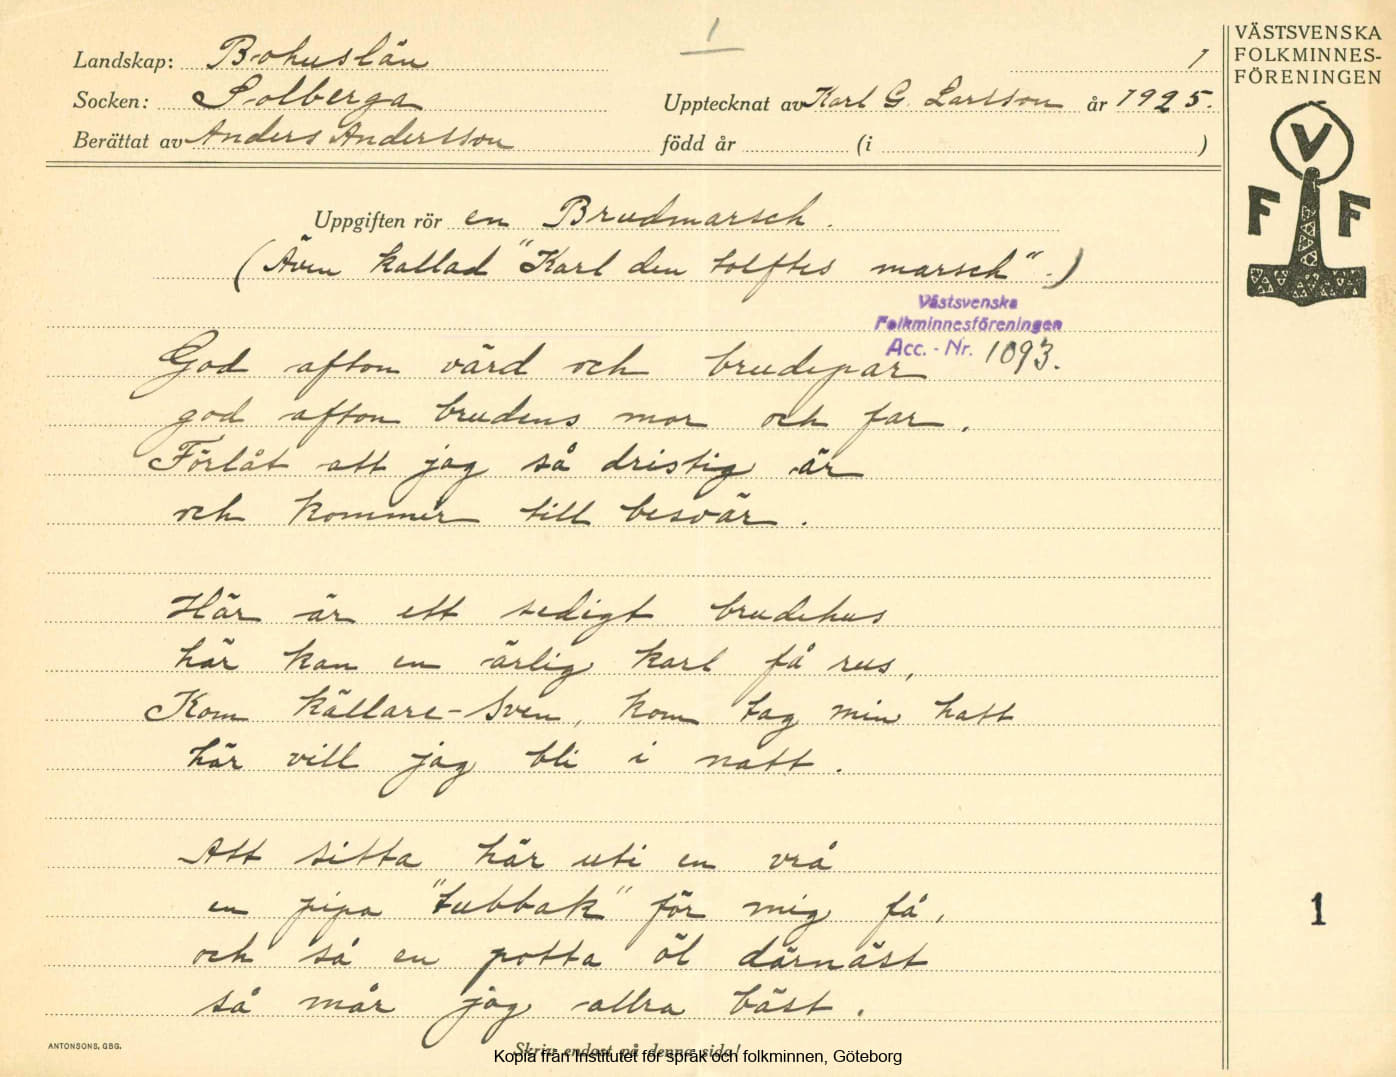 1
VÄSTSVENSKA
FOLKMINNES-
FÖRENINGEN
V
F F
Landskap: Bohuslän 1
Socken: Solberga Upptecknat av Karl G. Larsson år 1925.
Berättat av Anders Andersson född år (i )
Uppgiften rör en Brudmarsch.
(Även kallad "Karl den tolftes marsch".)
Västsvenska
Folkminnesföreningen
Acc. - Nr. 1093.
God afton värd och brudepar
god afton brudens mor och far,
Förlåt att jag så dristig är
och kommer till besvär.
Här är ett sedigt brudehus
här kan en ärlig karl få rus,
Kom källare-Sven, kom tag min hatt
här vill jag bli i natt.
Att sitta här uti en vrå
en pipa "tubbak" för mig få,
och så en potta öl därnäst
så mår jag allra bäst.
1
ANTONSONS, GBG.
Skriv endast på denna sida!
Kopia från Institutet för språk och folkminnen, Göteborg